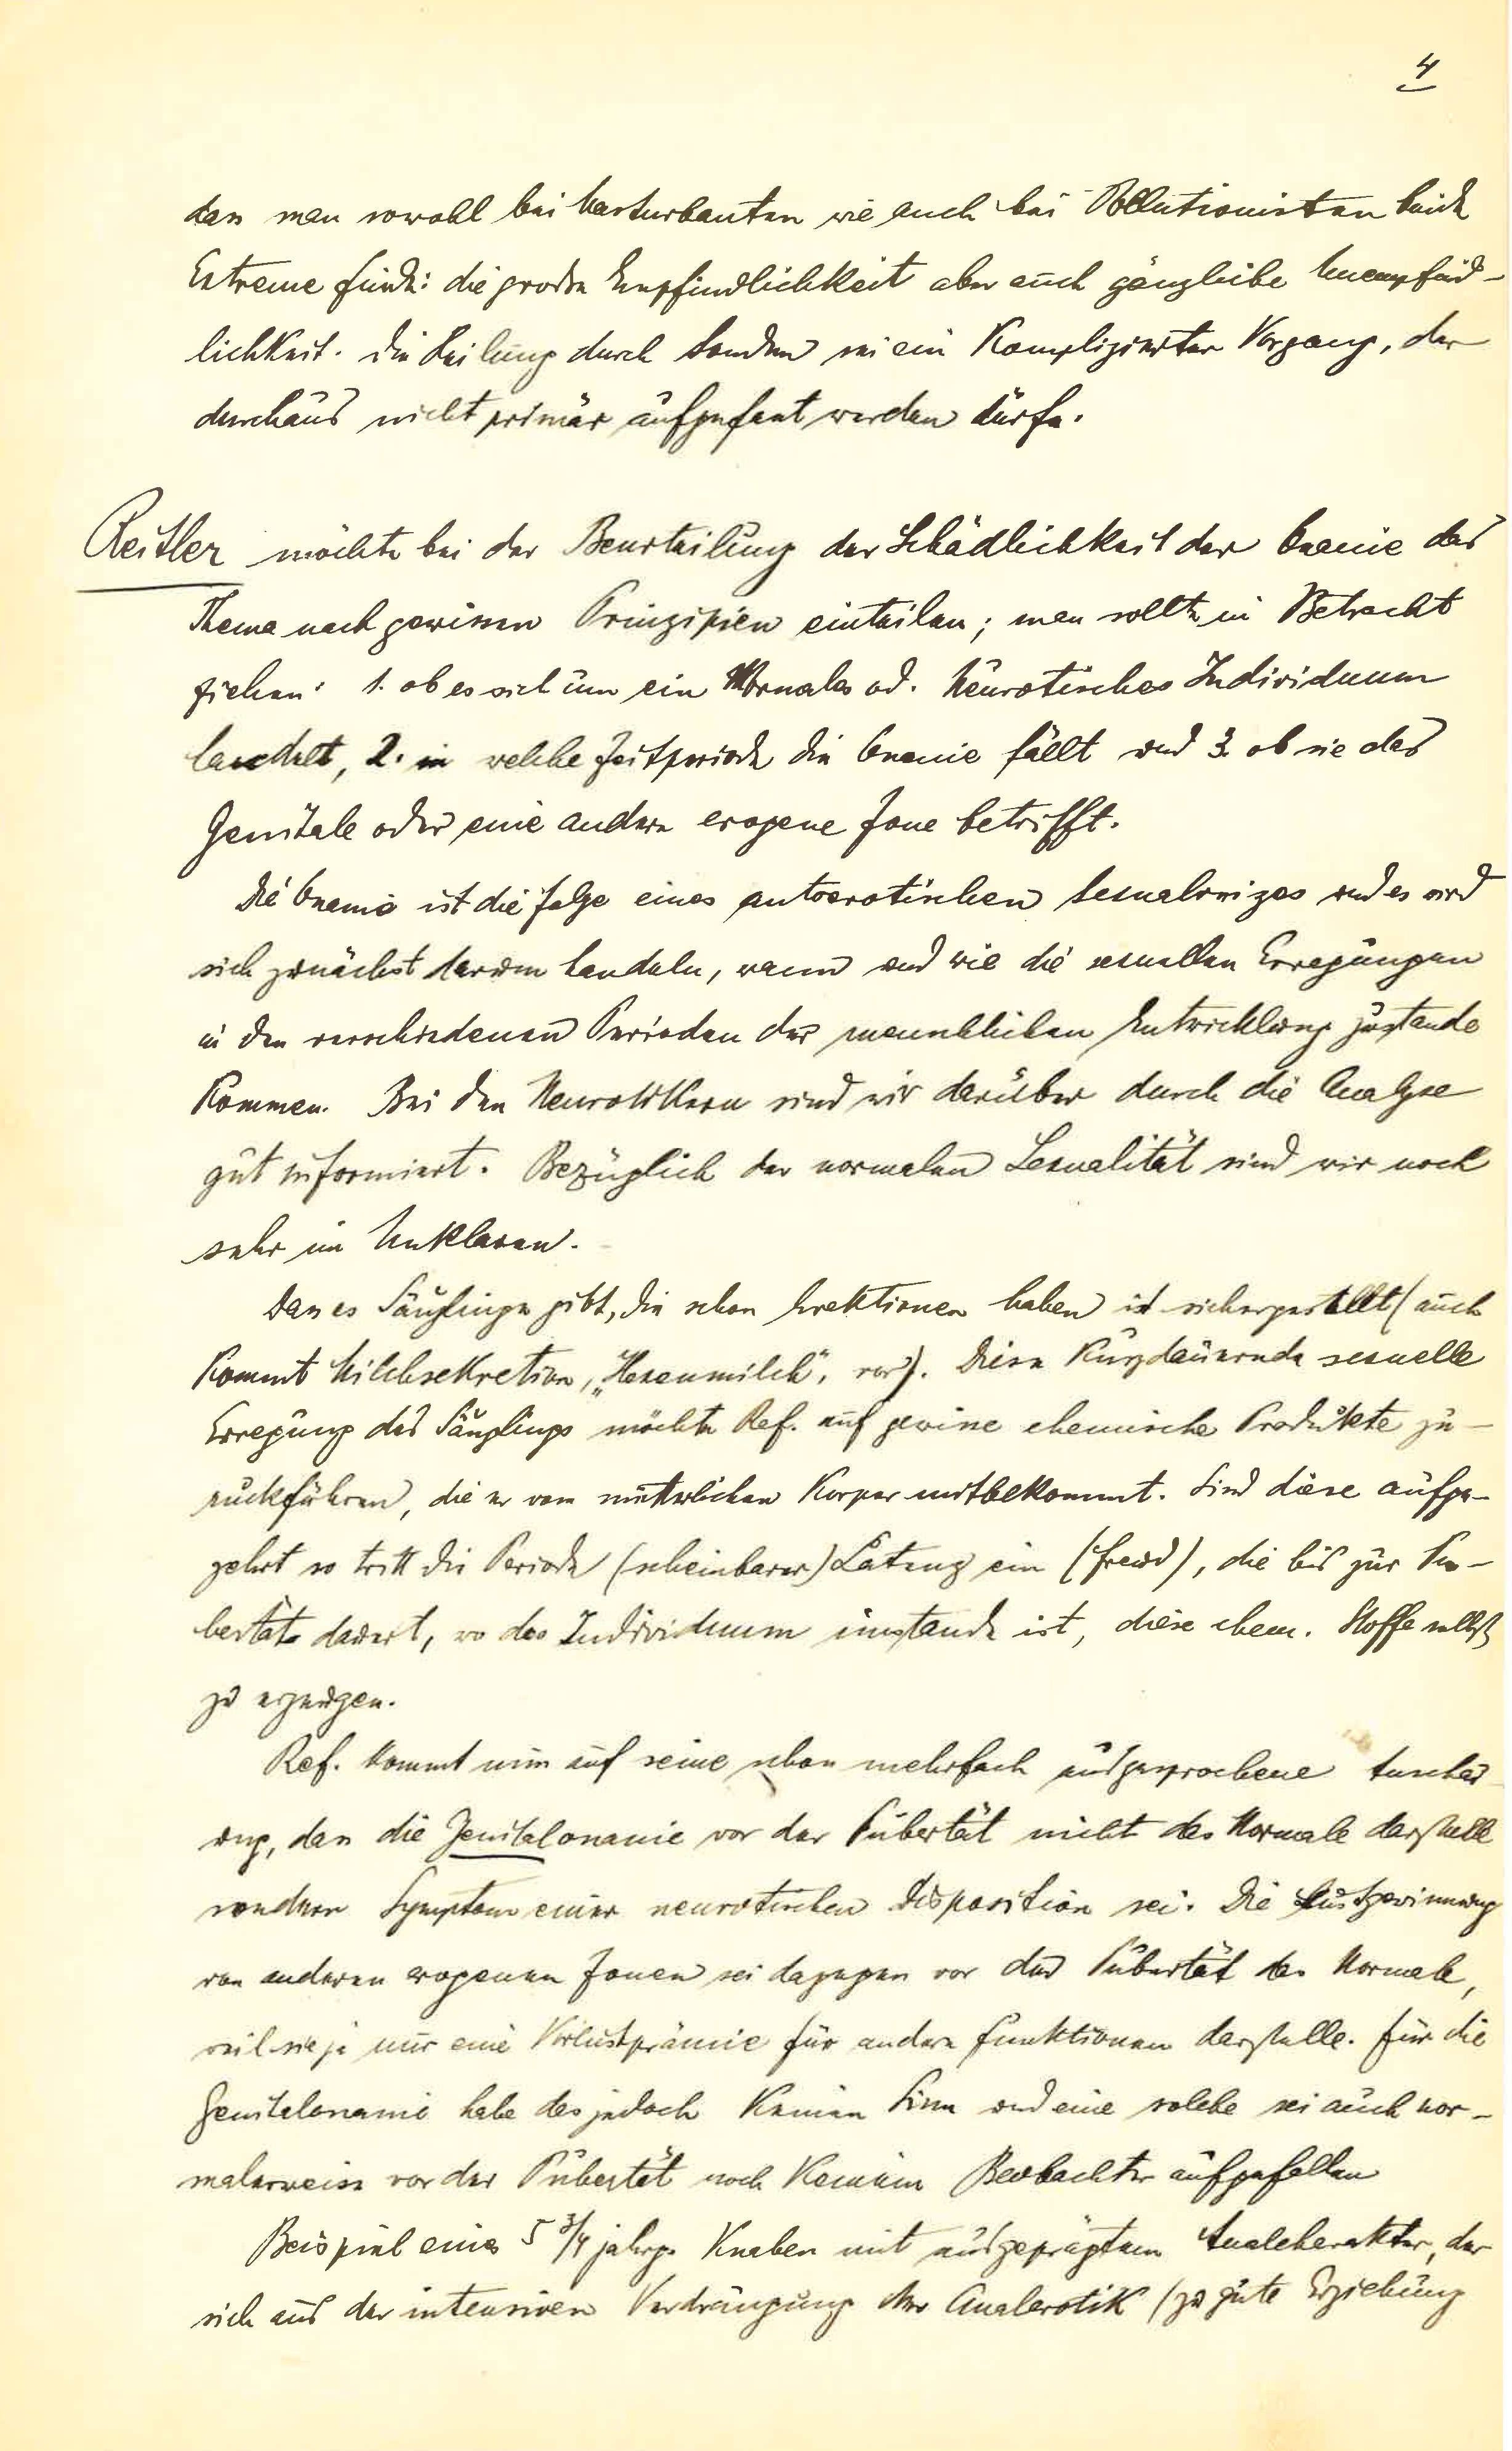 4
dass man sowohl bei Masturbanten wie auch bei Pollutionisten beide
Extreme finde: die große Empfindlichkeit aber auch gänzliche Unempfind-
lichkeit. Die Heilung durch Sonden sei ein Komplizierter Vorgang, der
durchaus nicht primär aufgefasst werden dürfe.
Reitler möchte bei der Beurteilung der Schädlichkeit der Onanie das
Thema nach gewissen Prinzipien einteilen; man sollte in Betracht
ziehen: 1. ob es sich um ein Normales od. Neurotisches Individuum
handelt, 2. in welche Zeitperiode die Onanie fällt und 3. ob sie das
Genitale oder eine andere erogene Zone betrifft.
Die Onanie ist die Folge eines autoerotischen Sexualreizes und es wird
sich zunächst darum handeln, wann und wie die sexuellen Erregungen
in den verschiedenen Perioden der menschlichen Entwicklung zustande
Kommen. Bei den Neurotikern sind wir darüber durch die Analyse
gut informiert. Bezüglich der normalen Sexualität sind wir noch
sehr im Unklaren.
Dass es Säuglinge gibt, die schon Erektionen haben ist sichergestellt (auch
Kommt Milchsekretion, „Hexenmilch“, vor). Diese Kurzdauernde sexuelle
Erregung des Säuglings möchte Ref. auf gewisse chemische Produkte zu-
rückführen, die er vom mütterlichen Körper mitbekommt. Sind diese aufge-
zehrt so tritt die Periode (scheinbarer) Latenz ein (Freud), die bis zur Pu-
bertät dauert, wo das Individuum imstande ist, diese chem. Stoffe selbst
zu erzeugen.
Ref. Kommt nun auf seine schon mehrfach ausgesprochene Anschau-
ung, dass die Genitalonanie vor der Pubertät nicht das Normale darstelle
sondern Symptom einer neurotischen Disposition sei. Die Lustgewinnung
von anderen erogenen Zonen sei dagegen vor der Pubertät das Normale,
weil sie ja nur eine Vorlustprämie für andere Funktionen darstelle. Für die
Genitalonanie habe das jedoch Keinen Sinn und eine solche sei auch nor-
malerweise vor der Pubertät noch Keinem Beobachter aufgefallen
Beispiel eines 5 3/4 jährg. Knaben mit ausgeprägtem Analcharakter, der
sich aus der intensiven Verdrängung der Analerotik (zu gute Erziehung